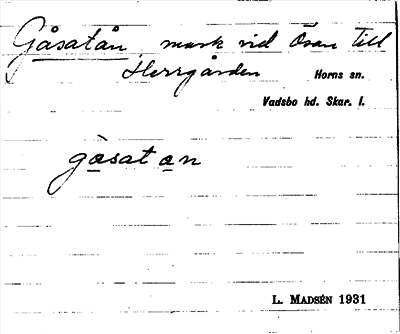 Gåsatån, mark vid Ösan till
Herrgården Horns sn.
Vadsbo hd. Skar. l.
gåsatan
L. MADSÉN 1931